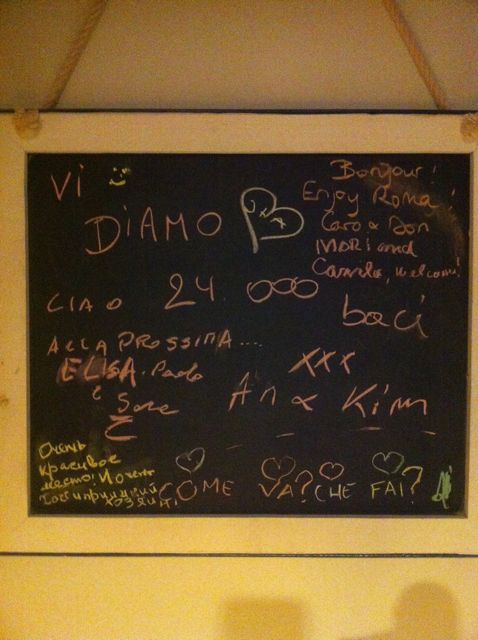 Vi
DIAMO
CIAO 24.000
baci
ALLA PROSSIMA....
ELISA. Paolo
e
Bonjour!
Enjoy Roma!
Caro & Don
and
Camila, welcome!
xxx
An & Kim
Очень
красивое
место! И очень
гостеприимный
хозяин,
COME VA? CHE FAI?